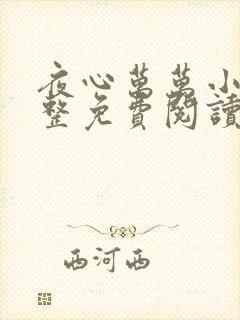 夜心萬萬小
整免費閱讀
西河西